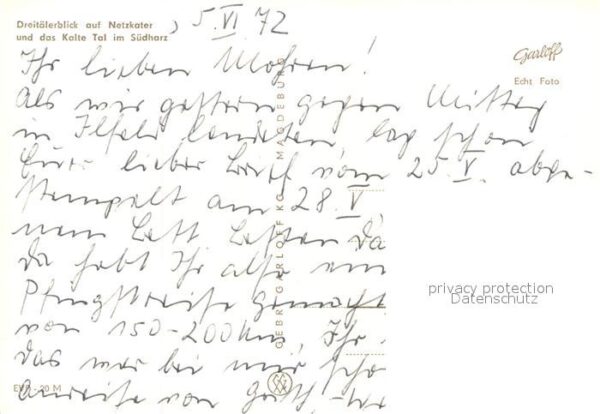 Dreitälerblick auf Netzkater
und das Kalte Tal im Südharz
5. VI 72
Garloff
Echt Foto
Ihr lieben Mohren!
Als wir gestern gegen Mittag
in Ilfeld landeten, lag schon
Euer lieber Brief vom 25. V. abge-
stempelt am 28. V,
Da
da habt Ihr also eine
Pfingstreise gemacht
von 150-200 km, Ihr.
das war bei mir scho
Anreise von
GEBR. GARLOFF KG MAGDEBURG
privacy protection
Datenschutz
EVP -,20 M